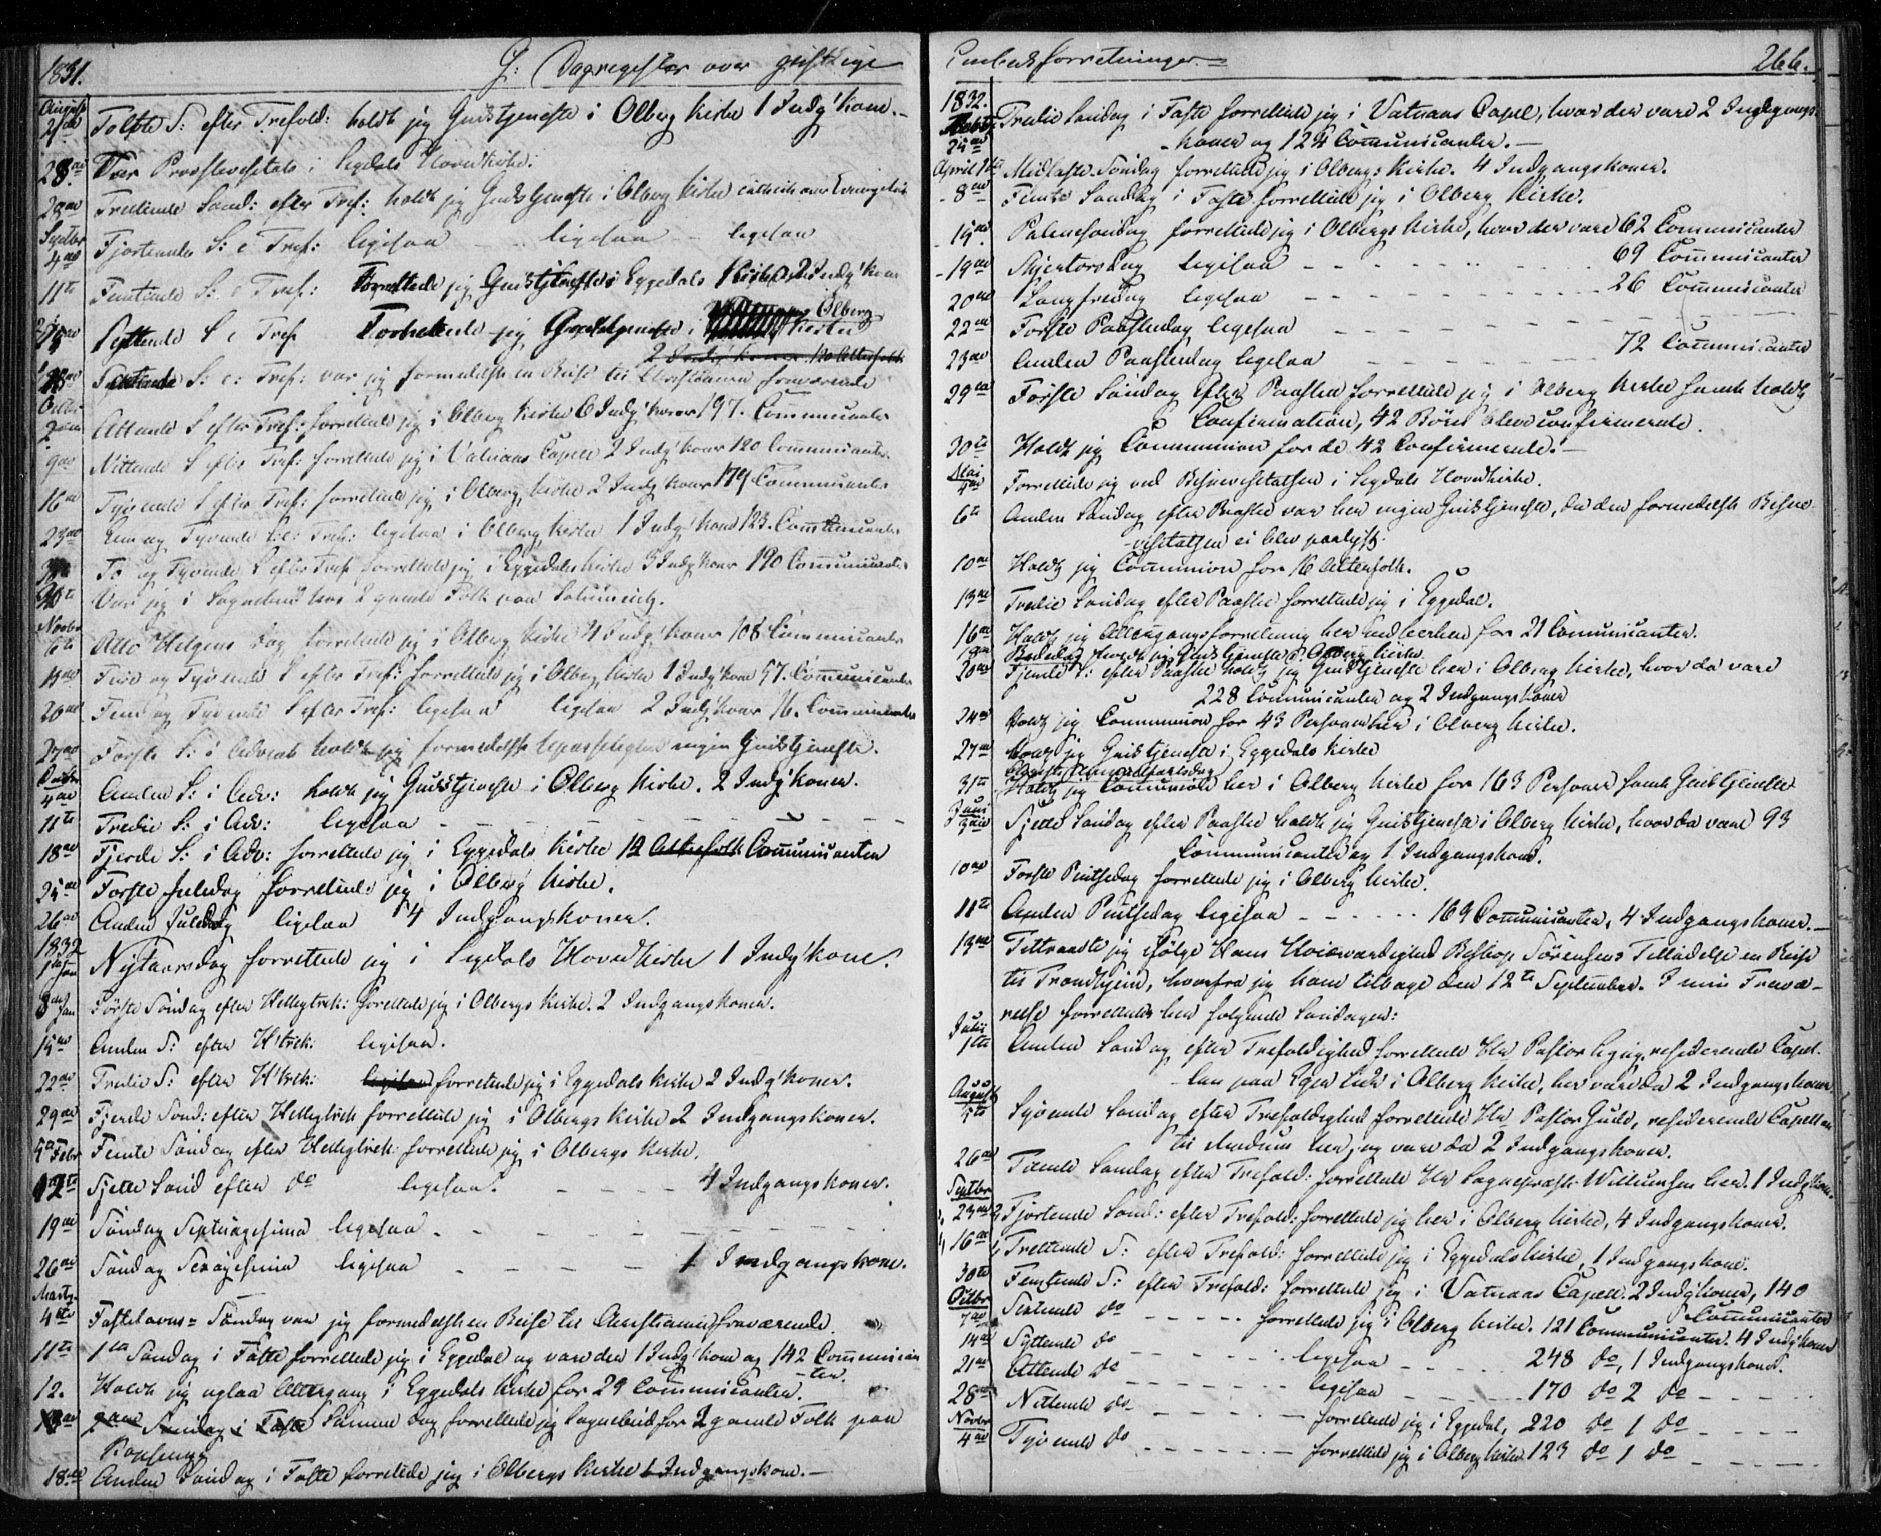 1831.
G: Dagregister over geistlige
August
21de Tolfte S: efter Trefold: holdt jeg Gudstjeneste i Olberg Kirke 1 Indg: kone.
28de Var Provstevisitats i Sigdals Hovedkirke.
28de Trettende Sønd: efter Tref: holdt jeg Gudstjeneste i Olberg Kirke
Septbr
4de Fjortende S: e Tref: ligesaa ligesaa ligesaa
11te Femtende S: e Tref: Forrettede jeg Gudstjeneste i Eggedals Kirke, 2 Indg: kon
Syttende S e Tref Forrettede jeg Gudstjeneste i Olberg Kirke
S: e: Tref: var jeg formedelst en Reise til Christiania fraværende
Octbr
2den Attende S efter Tref: forrettede jeg i Olberg Kirke 6 Indg: koner 197. Communicanter
9de Nittende S efter Tref: forrettede jeg i Vatnaas Capell 2 Indg: koner 120 Communicanter
16de Tyvende S efter Tref: forrettede jeg i Olberg Kirke 2 Indg: koner 179 Communicanter
23de Een og Tyvende S: e: Tref: ligesaa i Olberg Kirke 1 Indg: kone 123. Communicanter
To og Tyvende S efter Tref forrettede jeg i Eggedals Kirke 3 Indg: koner 190 Communicanter
Var jeg i Sognebud hos 2 gamle Folk paa
Novbr
6te Alle Helgens Dag forrettede jeg i Olberg Kirke 4 Indg: koner 108 Communicanter
Tre og Tyvende S efter Tref: forrettede jeg i Olberg Kirke 1 Indg: kone 57. Communicanter
20de Fem og Tyvende S efter Tref: ligesaa ligesaa 2 Indg: koner 76. Communicanter
27de Første S: i Advent holdt jeg formedelst Upasselighed ingen Gudstjeneste.
Decbr
4de Anden S: i Adv: holdt jeg Gudstjeneste i Olberg Kirke. 2 Indg: koner.
11te Tredie S: i Adv: ligesaa
18de Fjerde S: i Adv: forrettede jeg i Eggedals Kirke 12 Communicanter
25de Første Juledag forrettede jeg i Olberg Kirke.
26de Anden Juledag ligesaa 4 Indgangskoner.
1832
1ste Jan Nytaarsdag forrettede jeg i Sigdals Hovedkirke 1 Indg: kone.
8de Jan Første Søndag efter Helligtrek: forrettede jeg i Olbergs Kirke. 2 Indgangskoner.
15de Anden S: efter H: trek: ligesaa.
22de Tredie S: efter H: trek: ligesaa forrettede jeg i Eggedals Kirke 2 Indg: koner.
29de Fjerde Sønd: efter Helligtrek forrettede jeg i Olbergs Kirke 2 Indgangskoner.
5te Febr Femte Søndag efter Helligtrek: forrettede jeg i Olbergs Kirke.
12te Sjette Sønd efter do ligesaa. 4 Indgangskoner.
19de Søndag Septuagesima ligesaa
26de Søndag Sexagesima ligesaa 1 Indgangskone.
Marts
4de Fastelavns-Søndag var jeg formedelst en Reise til Christiania fraværende
11te 1ste Søndag i Faste forrettede jeg i Eggedal og vare der 1 Indg: kone og 142 Communican
ter.
12. Holdt jeg ogsaa Altergang i Eggedals Kirke for 29 Communicanter.
Søndag i Faste Samme Dag forrettede jeg Sognebud for 2 gamle Folk paa
18de Anden Søndag i Faste forrettede jeg i Olbergs Kirke 1 Indgangskone.
Embedsforretninger
266.
1832.
Marts
25de Tredie Søndag i Faste forrettede jeg i Vatnaas Capel, hvor der vare 2 Indgangs-
koner og 124 Communicanter.
April 1ste Midfaste Søndag forrettede jeg i Olbergs Kirke. 4 Indgangskoner.
8de Femte Søndag i Faste forrettede jeg i Olberg Kirke.
15de Palmesøndag forrettede jeg i Olbergs Kirke, hvor der vare 62 Communicanter
19de Skjertorsdag ligesaa 69 Communicanter
20de Langfredag ligesaa 26 Communicanter
22de Første Paaskedag ligesaa
23de Anden Paaskedag ligesaa 72 Communicanter
29de Første Søndag efter Paaske forrettede jeg i Olberg Kirke samt holdt
Confirmation, 42 Børn bleve confirmerede.
30te Holdt jeg Communion for de 42 Confirmerede.
Mai
4de Forrettede jeg ved Bispevisitatsen i Sigdals Hovedkirke.
6te Anden Søndag efter Paaske var her ingen Gudstjeneste, da den formedelst Bispe-
visitatsen ei blev paalyst.
10de Holdt jeg Communion for 16 Altersfolk.
13de Tredie Søndag efter Paaske forrettede jeg i Eggedal.
16de Holdt jeg Altergangsforretning her ved Kirken for 21 Communicanter.
18de Bededag holdt jeg Gudstjeneste i Olberg Kirke
20de Fjerde S: efter Paaske holdt jeg Gudstjeneste her i Olberg Kirke, hvor da vare
228 Communicanter og 2 Indgangskoner
24de Holdt jeg Communion for 43 Personer her i Olberg Kirke.
27de holdt jeg Gudstjeneste i Eggedals Kirke
Christi Himmelfartsdag
31te Holdt jeg Communion her i Olberg Kirke for 163 Personer samt Gudstjeneste
Juni
3die Sjette Søndag efter Paaske holdt jeg Gudstjeneste i Olberg Kirke, hvor da vare 93
Communicanter og 1 Indgangskone.
10de Første Pintsedag forrettede jeg i Olberg Kirke.
11te Anden Pintsedag ligesaa 169 Communicanter, 4 Indgangskoner.
13de Tiltraadte jeg ifølge Hans Høiærværdighed Biskop Sørensens Tilladelse en Reise
til Trondhjem, hvorfra jeg kom tilbage den 12te September. I min Fravæ-
relse forrettedes her følgende Søndager:
Julii
1ste Anden Søndag efter Trefoldighed forrettede Hr Pastor residerende Capel-
lan paa Eger her i Olberg Kirke, her vare da 2 Indgangskoner
August
5te Syvende Søndag efter Trefoldighed forrettede Hr Pastor Gude, residerende Capellan
til Modum her, og vare da 2 Indgangskoner.
26de Tiende Søndag efter Trefold: forrettede Hr Sognepræst Willumsen her. 1 Indg: kone.
Septbr
23de Fjortende Sønd: efter Trefold: forrettede jeg her i Olberg Kirke, 4 Indgangskoner.
16de Trettende S: efter Trefold: forrettede jeg i Eggedals Kirke, 1 Indgangskone.
30te Femtende S: efter Trefold: forrettede jeg i Vatnaas Capell. 2 Indg: koner, 140
Communicanter
Octbr
7de Sextende do forrettede jeg i Olberg Kirke. 121 Communicanter. 4 Indg: koner
14de Syttende do ligesaa 248 do, 1 Indgangskone.
21de Attende do ligesaa 170 do 2 do
28de Nittende do forrettede jeg i Eggedal, 220 do 1 do
Novbr
4de Tyvende do forrettede jeg i Olberg Kirke 123 do 1 do